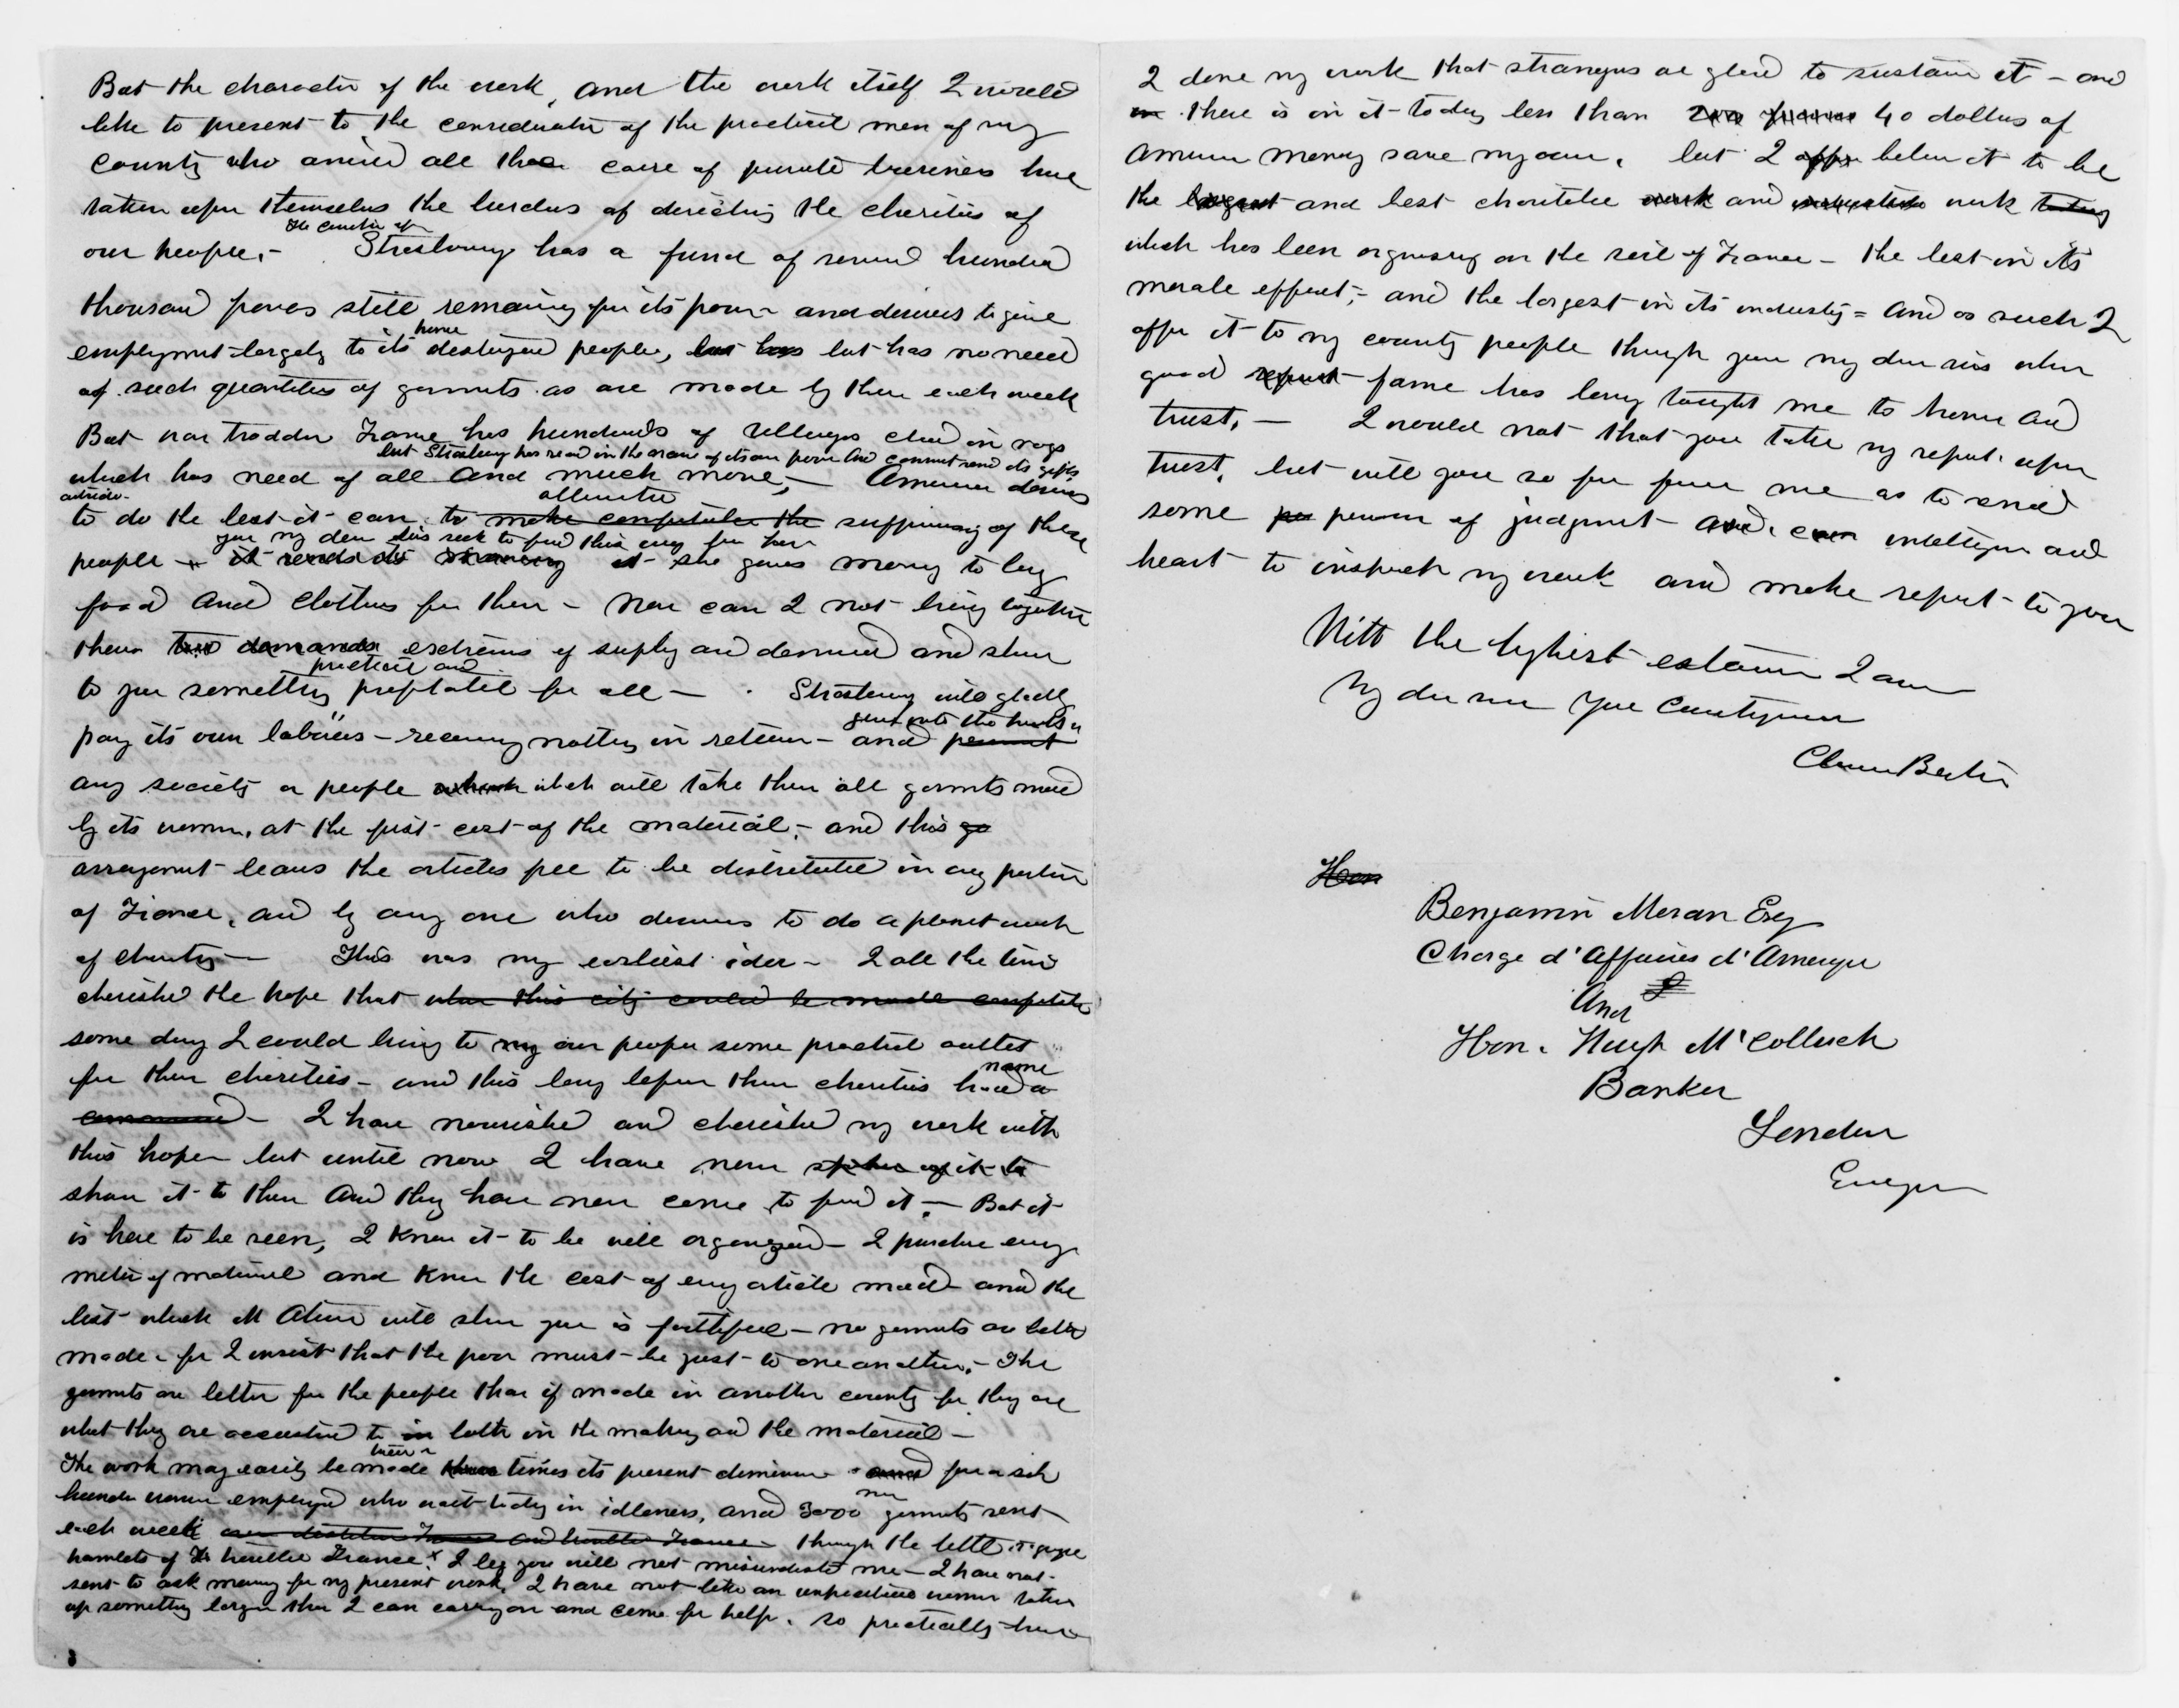 But the character of the work, and the work itself I would
like to present to the consideration of the practical men of my
country who amid all the care of private business have
taken upon themselves the burdens of directing the charities of
our people. - The Comite of Strasbourg has a fund of several hundred
thousand francs still remaining for its poor and desires to give
employment largely to its home destroyed people, but has but has no need
of such quantities of garments as are made by them each week
But war trodden France has hundreds of villages clad in rags
but Strasbourg has read in the name of its own poor and cannot send its gifts
which has need of all and much more, - America desires
outside -
to do the best it can to make comfortable the alleviate suffering of these
you my dear sirs seek to find this way for her
people - it sends its money it she gives money to buy
food and clothes for them - Now can I not bring together
these two demands extremes of supply and demand and show
to you something practical and profitable for all - Strasbourg will gladly
pay its own laborers - receiving nothing in return - and permit give into the hands of
any society or people which will take them all garments made
by its women, at the first cost of the material, - and this
arrangement leaves the articles free to be distributed in any portion
of France, and by any one who desires to do a planet work
of charity - This was my earliest idea - I all the time
cherished the hope that when this city could be made comfortable
some day I could bring to my own people some practical outlet
for their charities - and this long before their charities had a name
- I have nourished and cherished my work with
this hope - but until now I have never spoken of it to
shown it to them And they have never come to find it. - But it
is here to be seen, I know it to be well organized - I purchase every
meter of material and know the cost of every article made and the
list which M will show you is faithful - no garments are better
made - for I insist that the poor must be just to one another. - The
garments are better for the people than if made in another country for they are
what they are accustomed to in both in the making and the material -
The work may easily be made three times its present dimension - and for a six
hundred women employed who wait today in idleness, and 3000 new garments sent
each week and humble France - through the little
hamlets of humble France. x I beg you will not misunderstand me - I have not
sent to ask money for my present work. I have not like an unpractical woman taken
up something larger than I can carry on and come for help. so practically have
I done my work that strangers are glad to sustain it - and
in there is in it today less than two francs 40 dollars of
American money save my own. but I offer believe it to be
the largest and best charitable work and work today
which has been organized on the soil of France - the best in its
morale effect, - and the largest in its industry = And as such I
offer it to my country people through you my dear sirs whose
good report fame has long taught me to honor and
trust. - I would not that you take my report upon
trust, but will you so far favor me as to send
some person of judgment and even intelligence and
heart to inspect my work and make report to you
With the highest esteem I am
My dear sirs Your Countrywoman
Clara Barton
Hon
Benjamin Moran Esq
Charge d'Affaires d'Amerique
And
Hon. Hugh McColloch
Banker
London